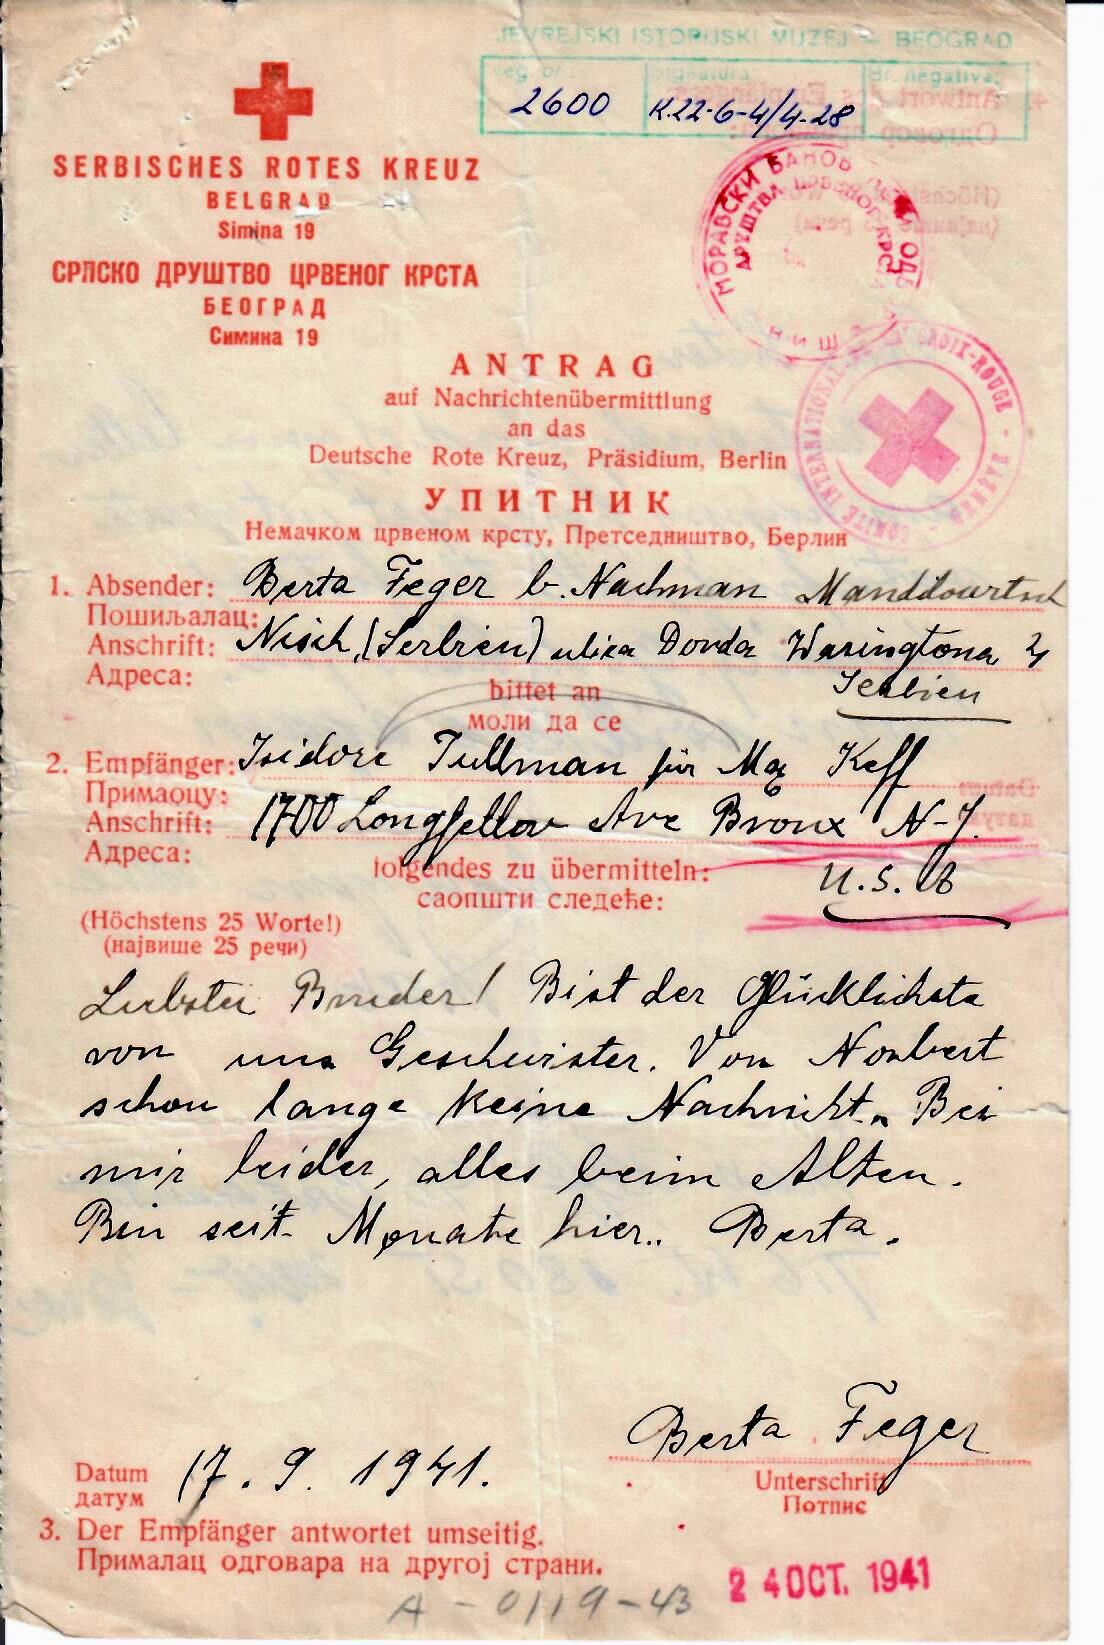 JEVREJSKI ISTORIJSKI MUZEJ — BEOGRAD
Reg. br.: Signatura: Br. negativa:
2600 K.22-6-4/4-28
SERBISCHES ROTES KREUZ
BELGRAD
Simina 19
СРПСКО ДРУШТВО ЦРВЕНОГ КРСТА
БЕОГРАД
Симина 19
МОРАВСКИ БАНОВ ОДБ
ДРУШТВА ЦРВЕНОГ КРСТА
НИШ
COMITÉ INTERNATIONAL DE LA CROIX-ROUGE - GENÈVE
ANTRAG
auf Nachrichtenübermittlung
an das
Deutsche Rote Kreuz, Präsidium, Berlin
УПИТНИК
Немачком црвеном крсту, Претседништво, Берлин
1. Absender: Berta Feger b. Nachman
Пошиљалац:
Anschrift: Nisch, (Serbien) ulica Dorda Waringtona
Адреса: Serbien
bittet an
моли да се
2. Empfänger: Isidore Tullman für Max Keff
Примаоцу:
Anschrift: 1700 Longfellow Ave Bronx N-J.
Адреса:
folgendes zu übermitteln: U.S.A
саопшти следеће:
(Höchstens 25 Worte!)
(највише 25 речи)
Liebster Bruder! Bist der Glücklichste
von uns Geschwister. Von Norbert
schon lange keine Nachricht. Bei
mir leider, alles beim Alten.
Bin seit Monate hier.. Berta.
Berta Feger
Datum 17. 9. 1941.
датум
Unterschrift
Потпис
3. Der Empfänger antwortet umseitig.
Прималац одговара на другој страни.
24 OCT. 1941
A - 0119-43